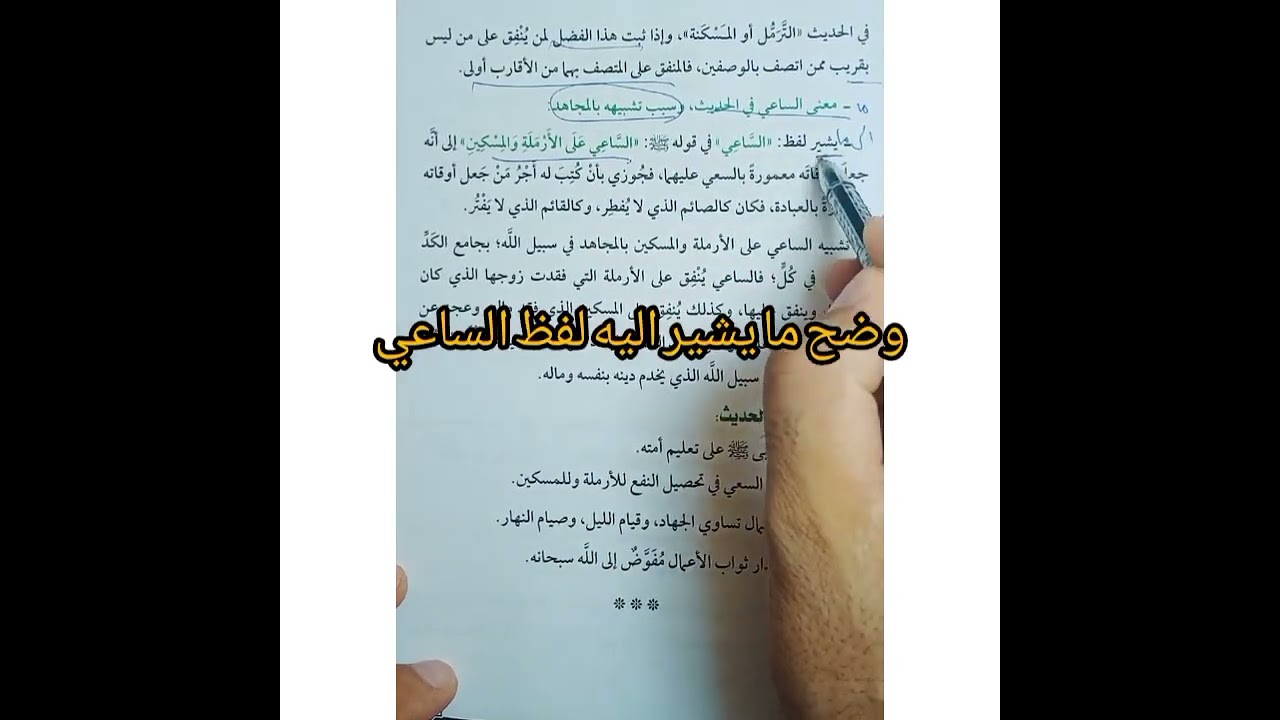 في الحديث «التَّرَمُّل أو المَسْكَنة»، وإذا ثبت هذا الفضل لمن يُنْفِق على من ليس
بقريب ممن اتصف بالوصفين، فالمنفق على المتصف بهما من الأقارب أولى.
- معنى الساعي في الحديث، وسبب تشبيهه بالمجاهد:
يشير لفظ: «السَّاعِي» في قوله ﷺ: «السَّاعِي عَلَى الأَرْمَلَةِ وَالمِسْكِينِ» إلى أنَّه
معمورةً بالسعي عليهما، فجُوزي بأنْ كُتِبَ له أَجْرُ مَنْ جَعل أوقاته
بالعبادة، فكان كالصائم الذي لا يُفطِر، وكالقائم الذي لا يَفْتُر.
تشبيه الساعي على الأرملة والمسكين بالمجاهد في سبيل اللَّه؛ بجامع الكَدِّ
في كُلٍّ؛ فالساعي يُنْفِق على الأرملة التي فقدت زوجها الذي كان
وينفق عليها، وكذلك يُنفِق على المسكين الذي وعجز عن
وضح ما يشير اليه لفظ الساعي
سبيل اللَّه الذي يخدم دينه بنفسه وماله.
الحديث:
ﷺ على تعليم أمته.
السعي في تحصيل النفع للأرملة وللمسكين.
تساوي الجهاد، وقيام الليل، وصيام النهار.
ثواب الأعمال مُفَوَّضٌ إلى اللَّه سبحانه.
***